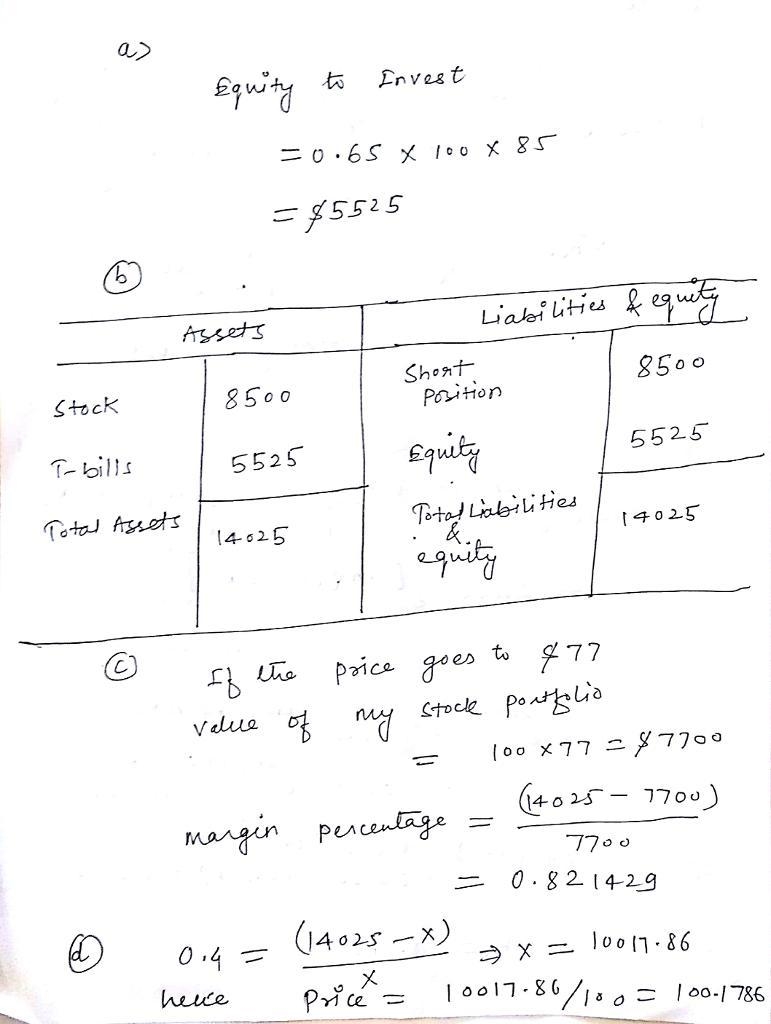 a)
Equity to Invest
= 0.65 x 100 x 85
= $5525
(b)
Assets Liabilities & equity
Stock 8500 Short Position 8500
T-bills 5525 Equity 5525
Total Assets 14025 Total Liabilities & equity 14025
(c) If the price goes to $77
value of my stock portfolio
= 100 x 77 = $7700
margin percentage = (14025 - 7700) / 7700
= 0.821429
(d) 0.4 = (14025 - x) / x ⇒ x = 10017.86
hence Price = 10017.86/100 = 100.1786